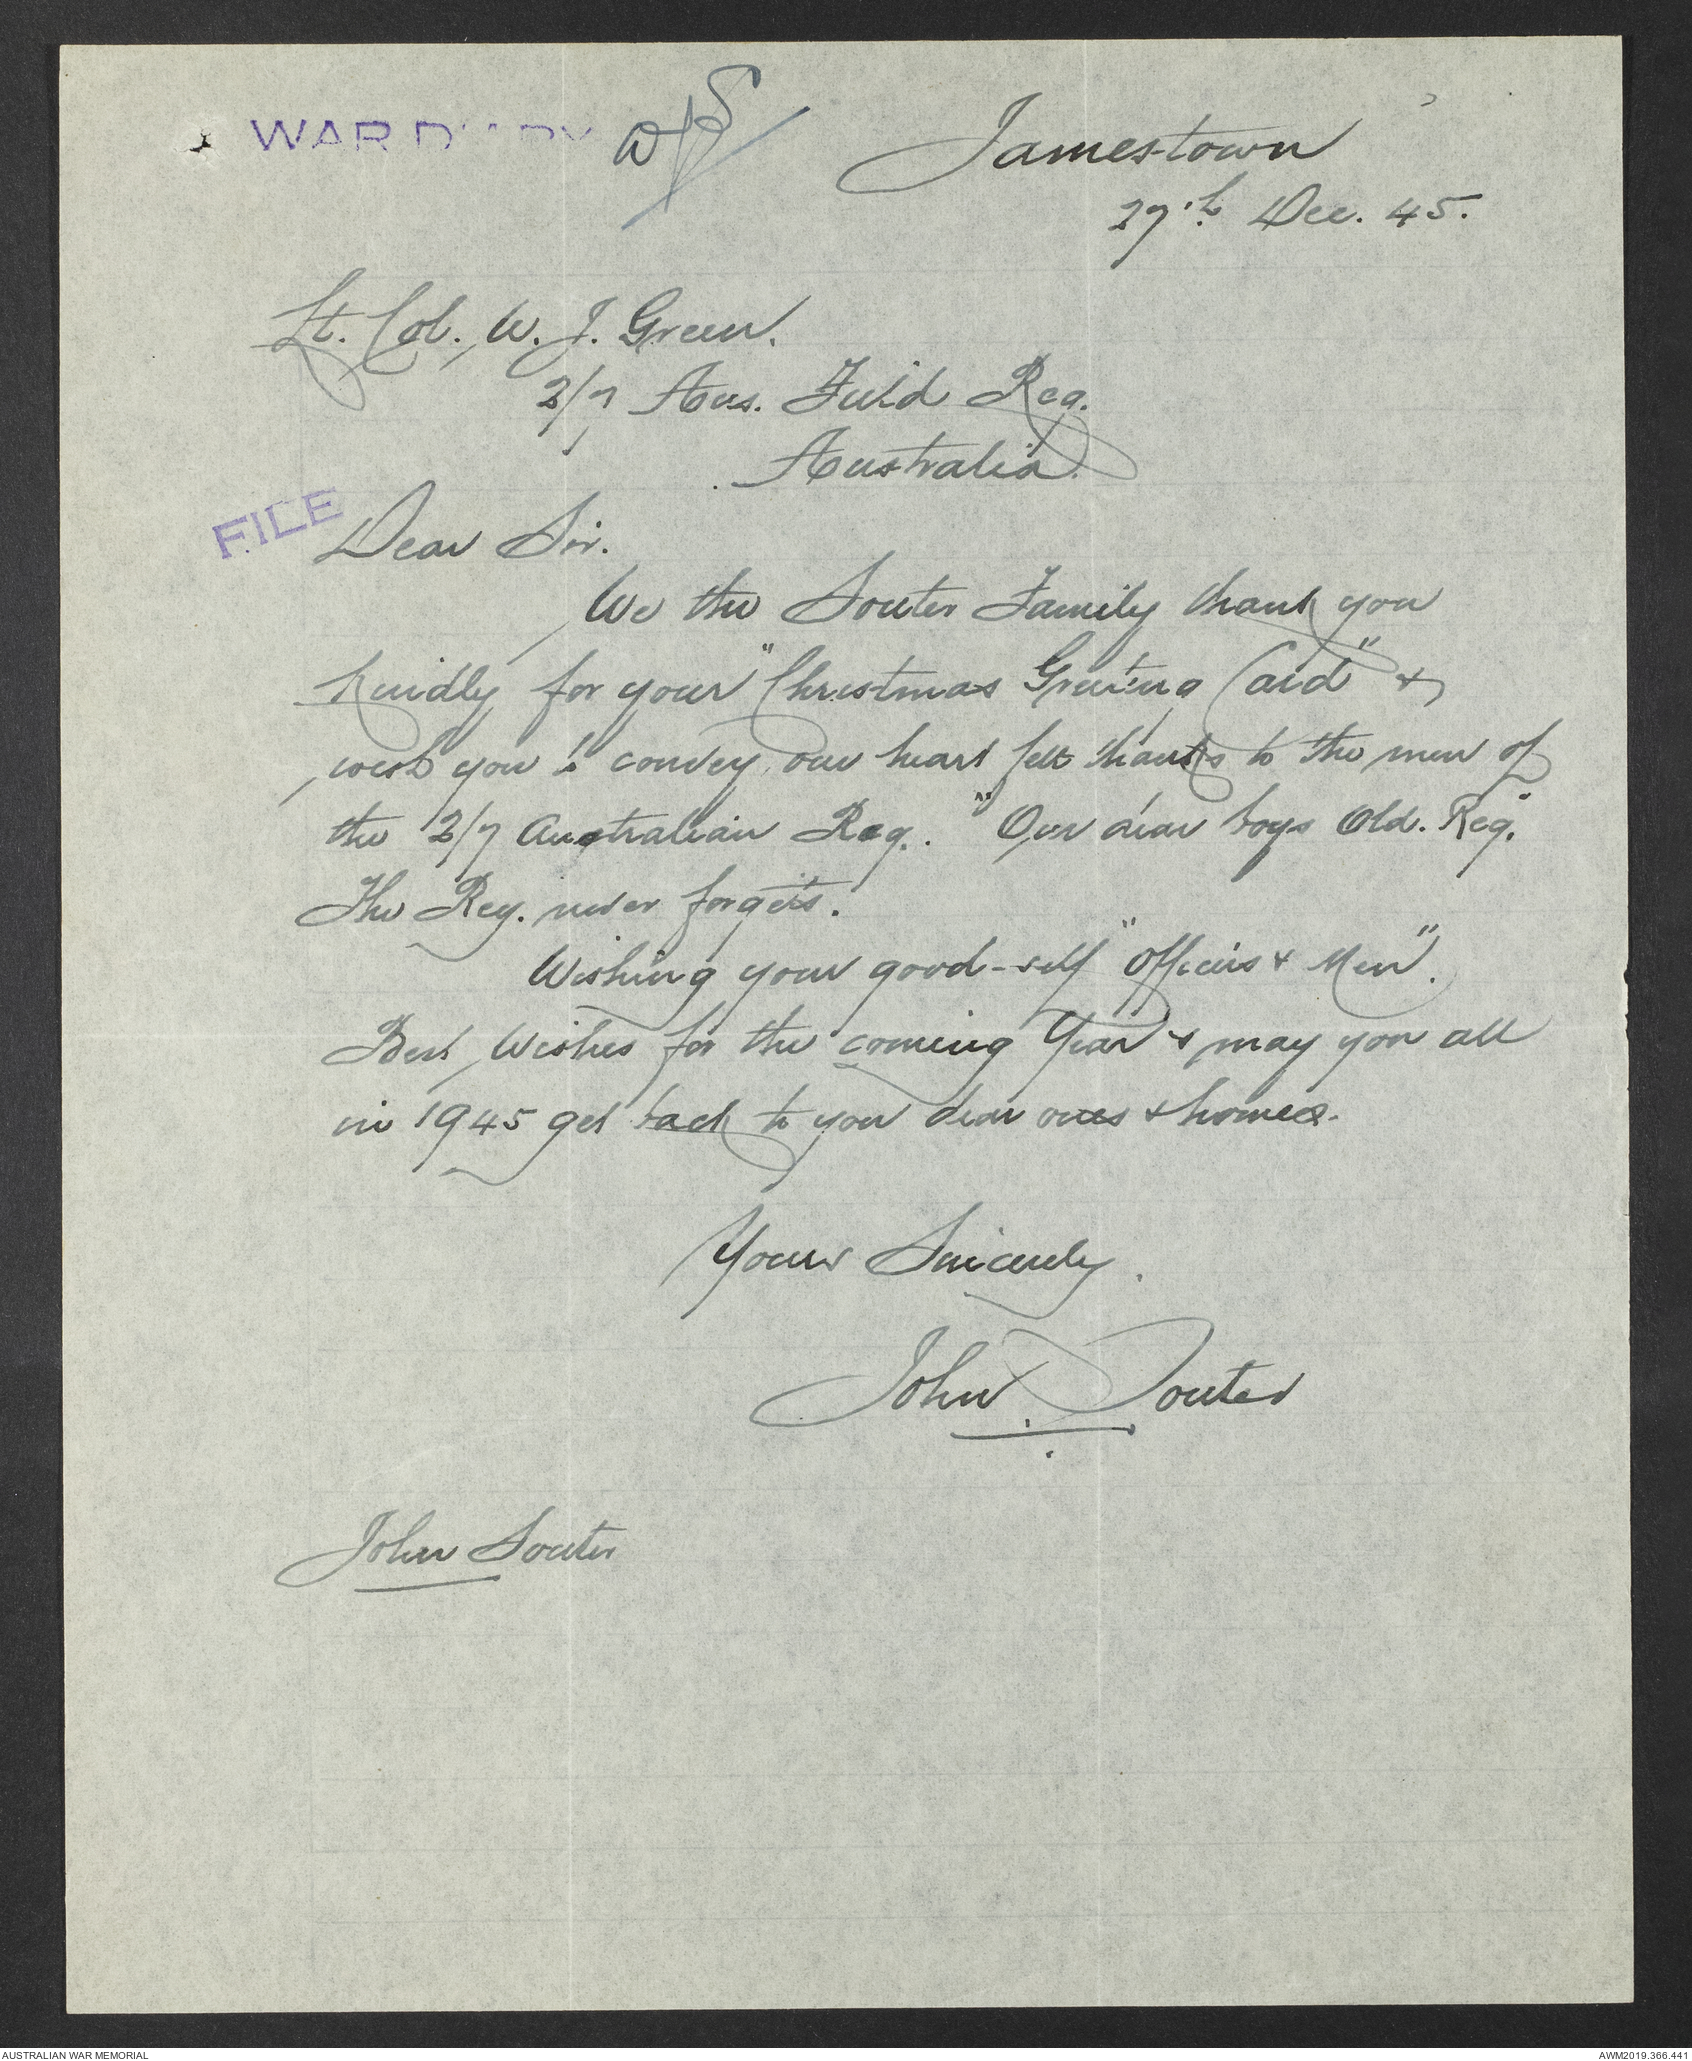 WAR DIARY
Jamestown
27th Dec. 45.
Lt. Col. W. J. Green.
2/7 Aus. Field Reg.
Australia.
FILE
Dear Sir.
We the Souter Family thank you
kindly for your "Christmas Greeting Card" &
wish you to convey our heart felt thanks to the men of
the 2/7 Australian Reg. "Our dear boys Old. Reg."
The Reg. never forgets.
Wishing your good-self "Officers & Men".
Best Wishes for the coming Year & may you all
in 1945 get back to your dear ones & homes.
Yours Sincerely.
John Souter
John Souter
AUSTRALIAN WAR MEMORIAL
AWM2019.366.441